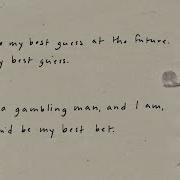 my best guess at the future.
my best guess.
a gambling man, and I am,
be my best bet.